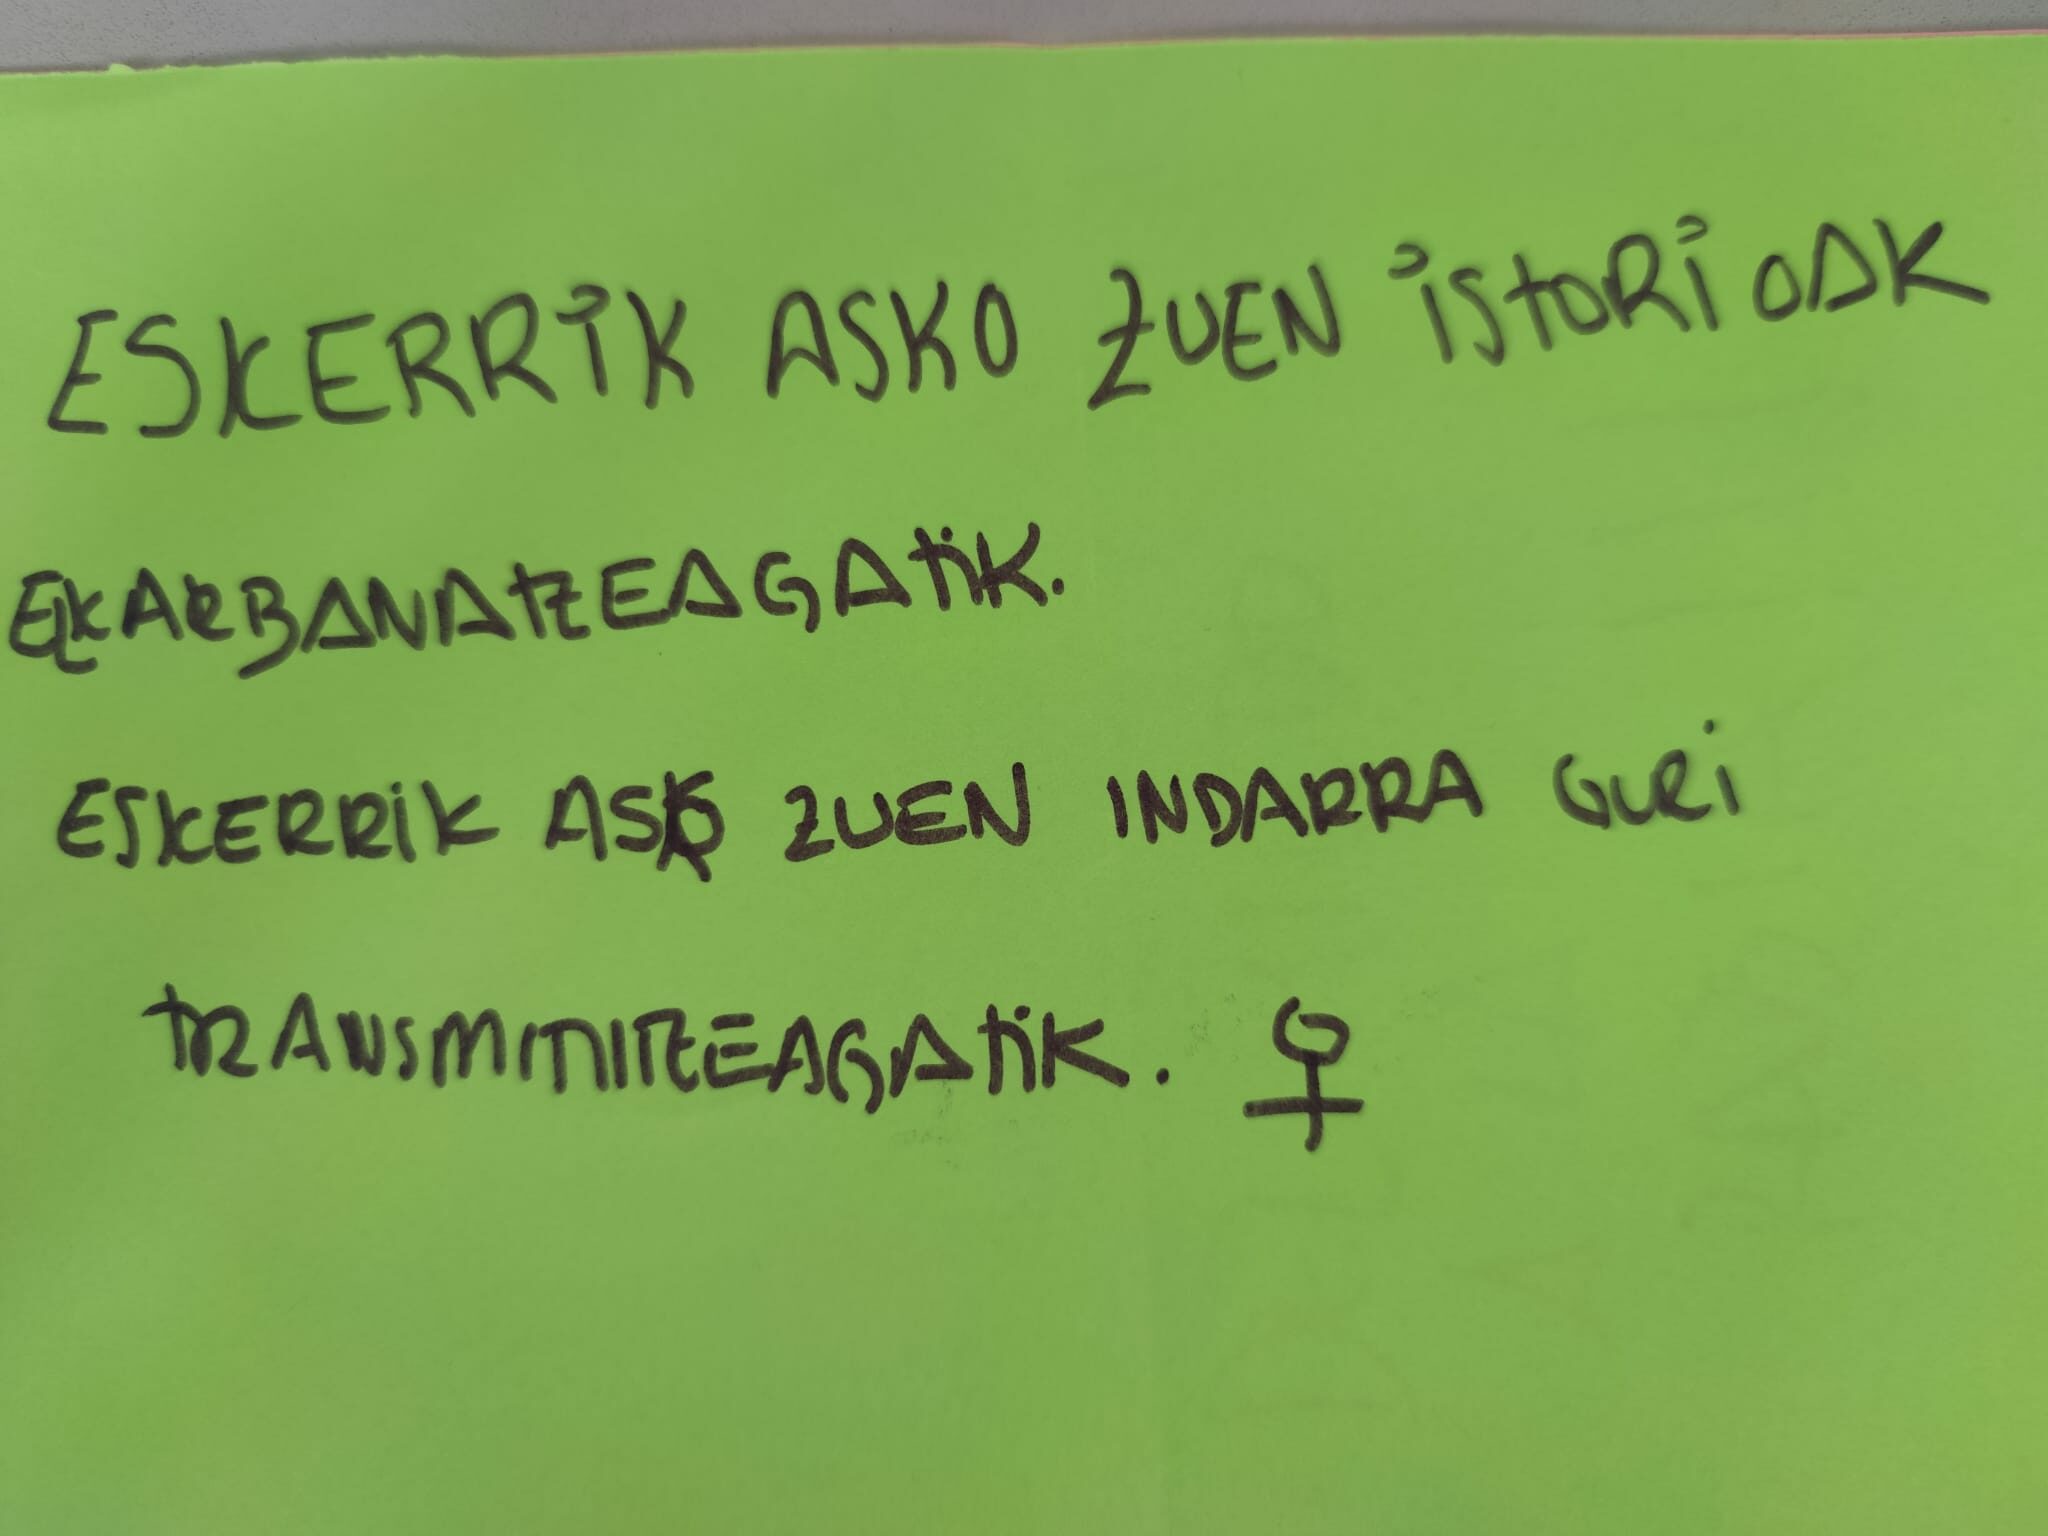 ESKERRIK ASKO ZUEN ISTORIOAK
EKARBANATZEAGATIK.
ESKERRIK ASKO ZUEN INDARRA GURI
TRANSMITITZEAGATIK. ♀